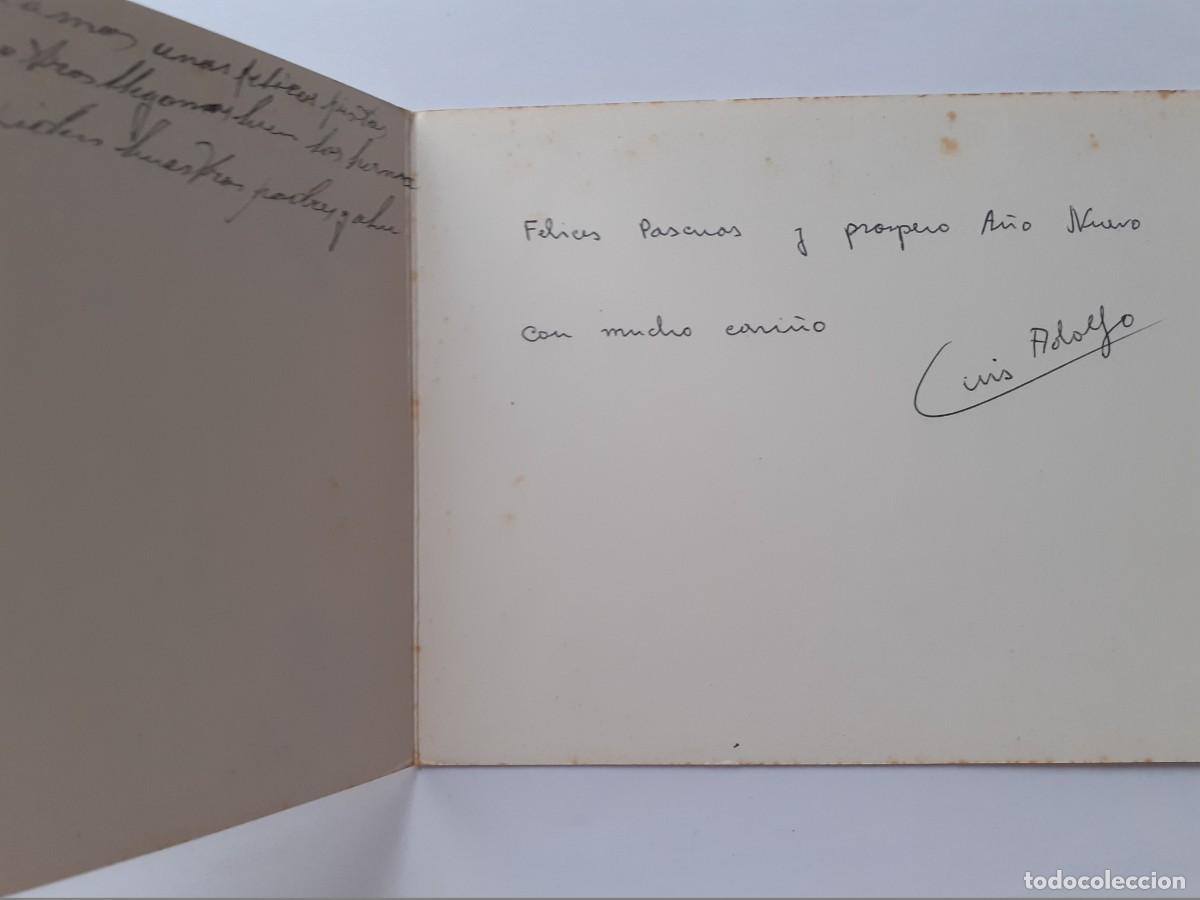 unas felices fiestas
llegamos bien los
nuestros padres
Felices Pascuas y prospero Año Nuevo
con mucho cariño
Luis Adolfo
todocoleccion